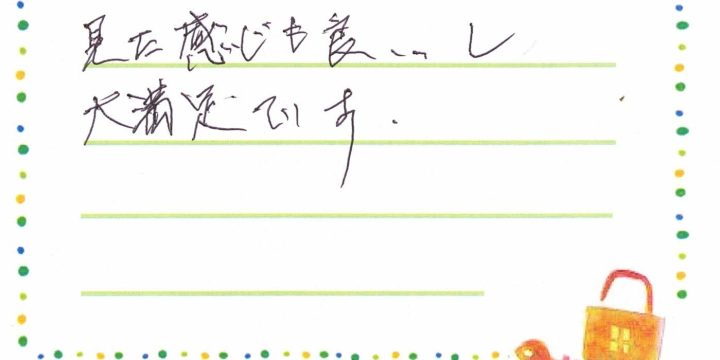 見た感じも良いし
大満足です.